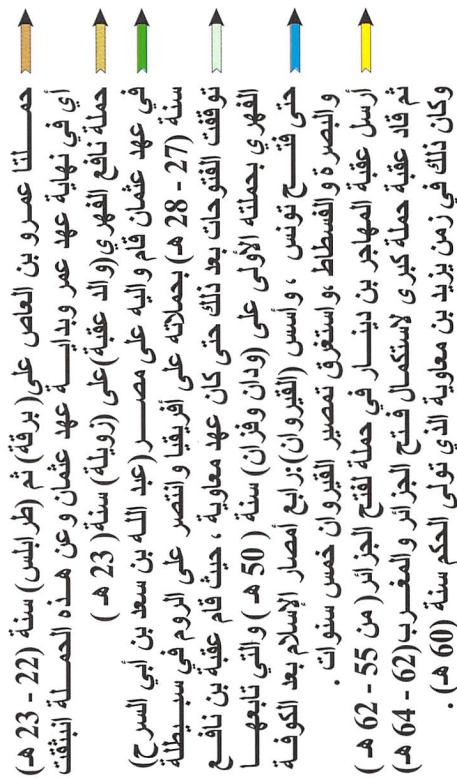 حملتا عمرو بن العاص على( برقة) ثم (طرابلس) سنة (22 - 23 هـ)
أي في نهاية عهد عمر وبداية عهد عثمان وعن هذه الحملة انبثقت
حملة نافع الفهري(والد عقبة)على (زويلة) سنة( 23 هـ )
في عهد عثمان قام واليه على مصر (عبد الله بن سعد بن أبي السرح)
سنة (27 - 28 هـ) بحملاته على أفريقيا وانتصر على الروم في سبيطلة
توقفت الفتوحات بعد ذلك حتى كان عهد معاوية ، حيث قام عقبة بن نافع
الفهري بحملته الأولى على (ودان وفزان) سنة ( 50 هـ ) والتي تابعها
حتى فتح تونس ، وأسس (القيروان):رابع أمصار الإسلام بعد الكوفة
والبصرة والفسطاط ،واستغرق تمصير القيروان خمس سنوات .
أرسل عقبة المهاجر بن دينار في حملة لفتح الجزائر( من 55 - 62 هـ )
ثم قاد عقبة حملة كبرى لاستكمال فتح الجزائر والمغرب(62 - 64 هـ)
وكان ذلك في زمن يزيد بن معاوية الذي تولى الحكم سنة (60 هـ) .